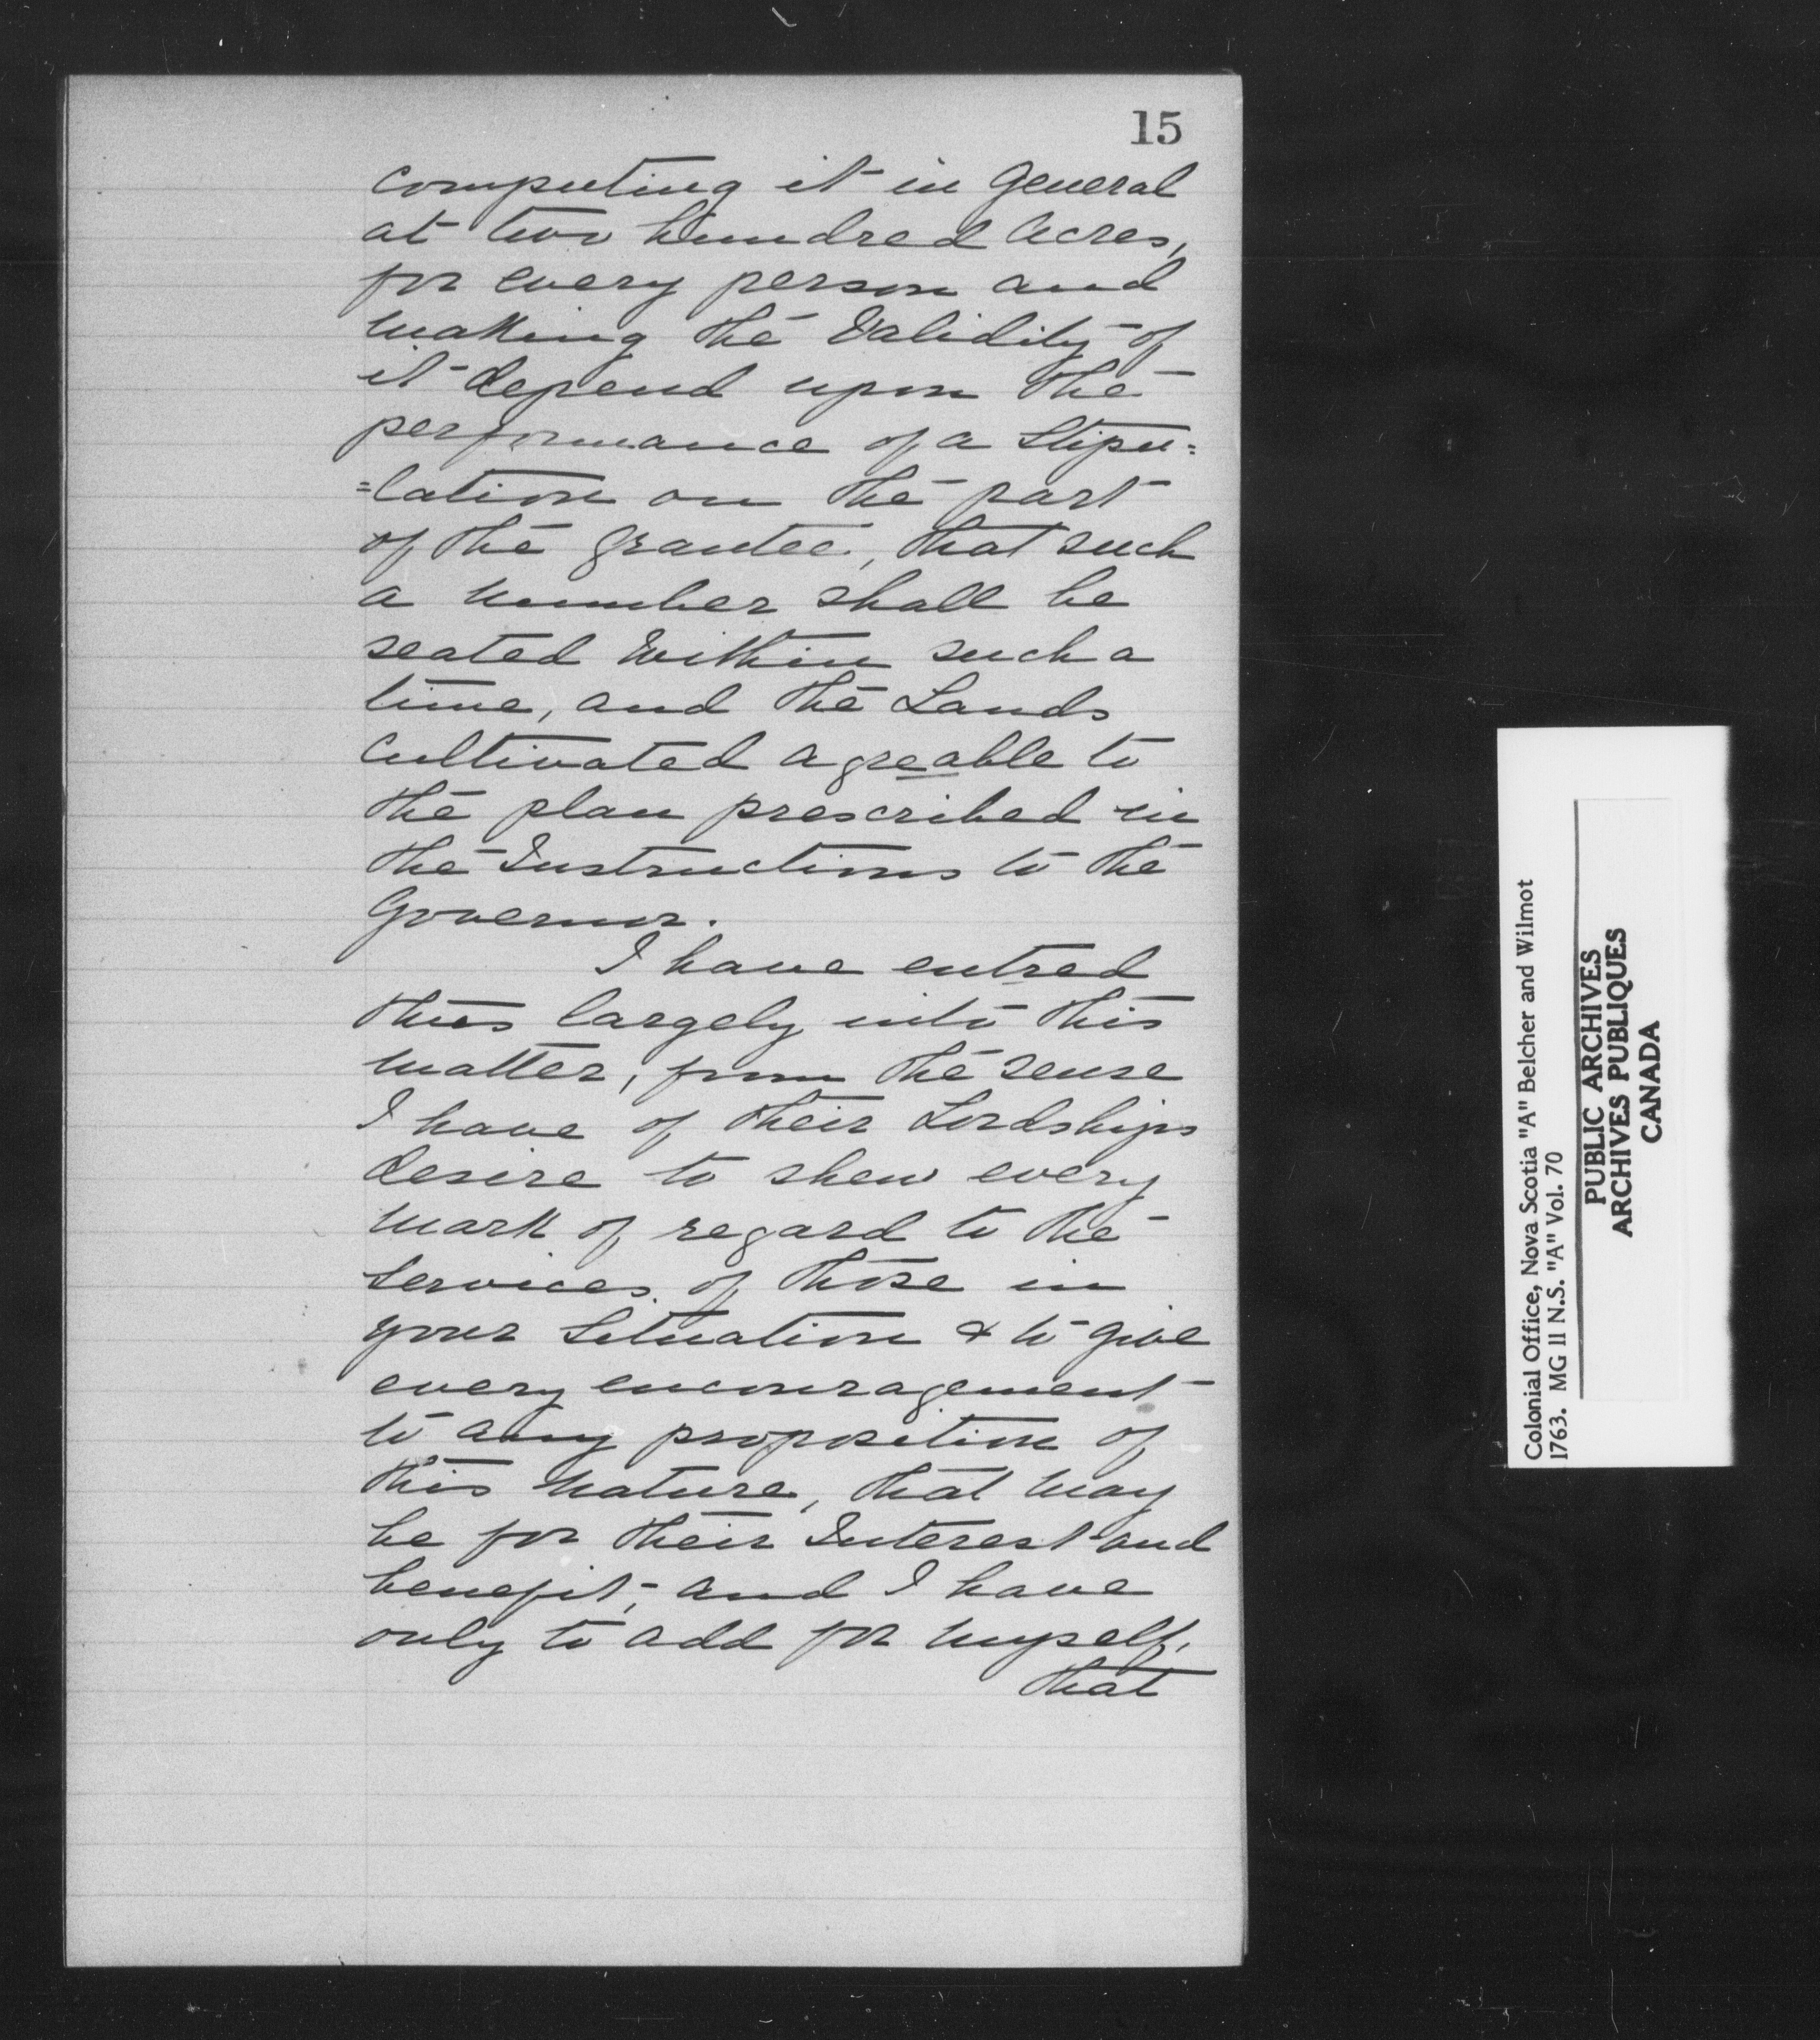 15
computing it in General
at two hundred Acres,
for every person and
making the Validity of
it depend upon the
performance of a Stipu=
=lation on the part
of the grantee, that such
a number shall be
seated Within such a
time, and the Lands
Cultivated agreable to
the plan prescribed in
the Instructions to the
Governor.
I have entred
thus largely into this
matter, from the sense
I have of their Lordships
desire to shew every
mark of regard to the
Services of those in
your Situation & to give
every encouragement
to any proposition of
this nature, that may
be for their Interest and
benefit; and I have
only to add for myself,
that
Colonial Office, Nova Scotia "A" Belcher and Wilmot
1763. MG 11 N.S. "A" Vol. 70
PUBLIC ARCHIVES
ARCHIVES PUBLIQUES
CANADA